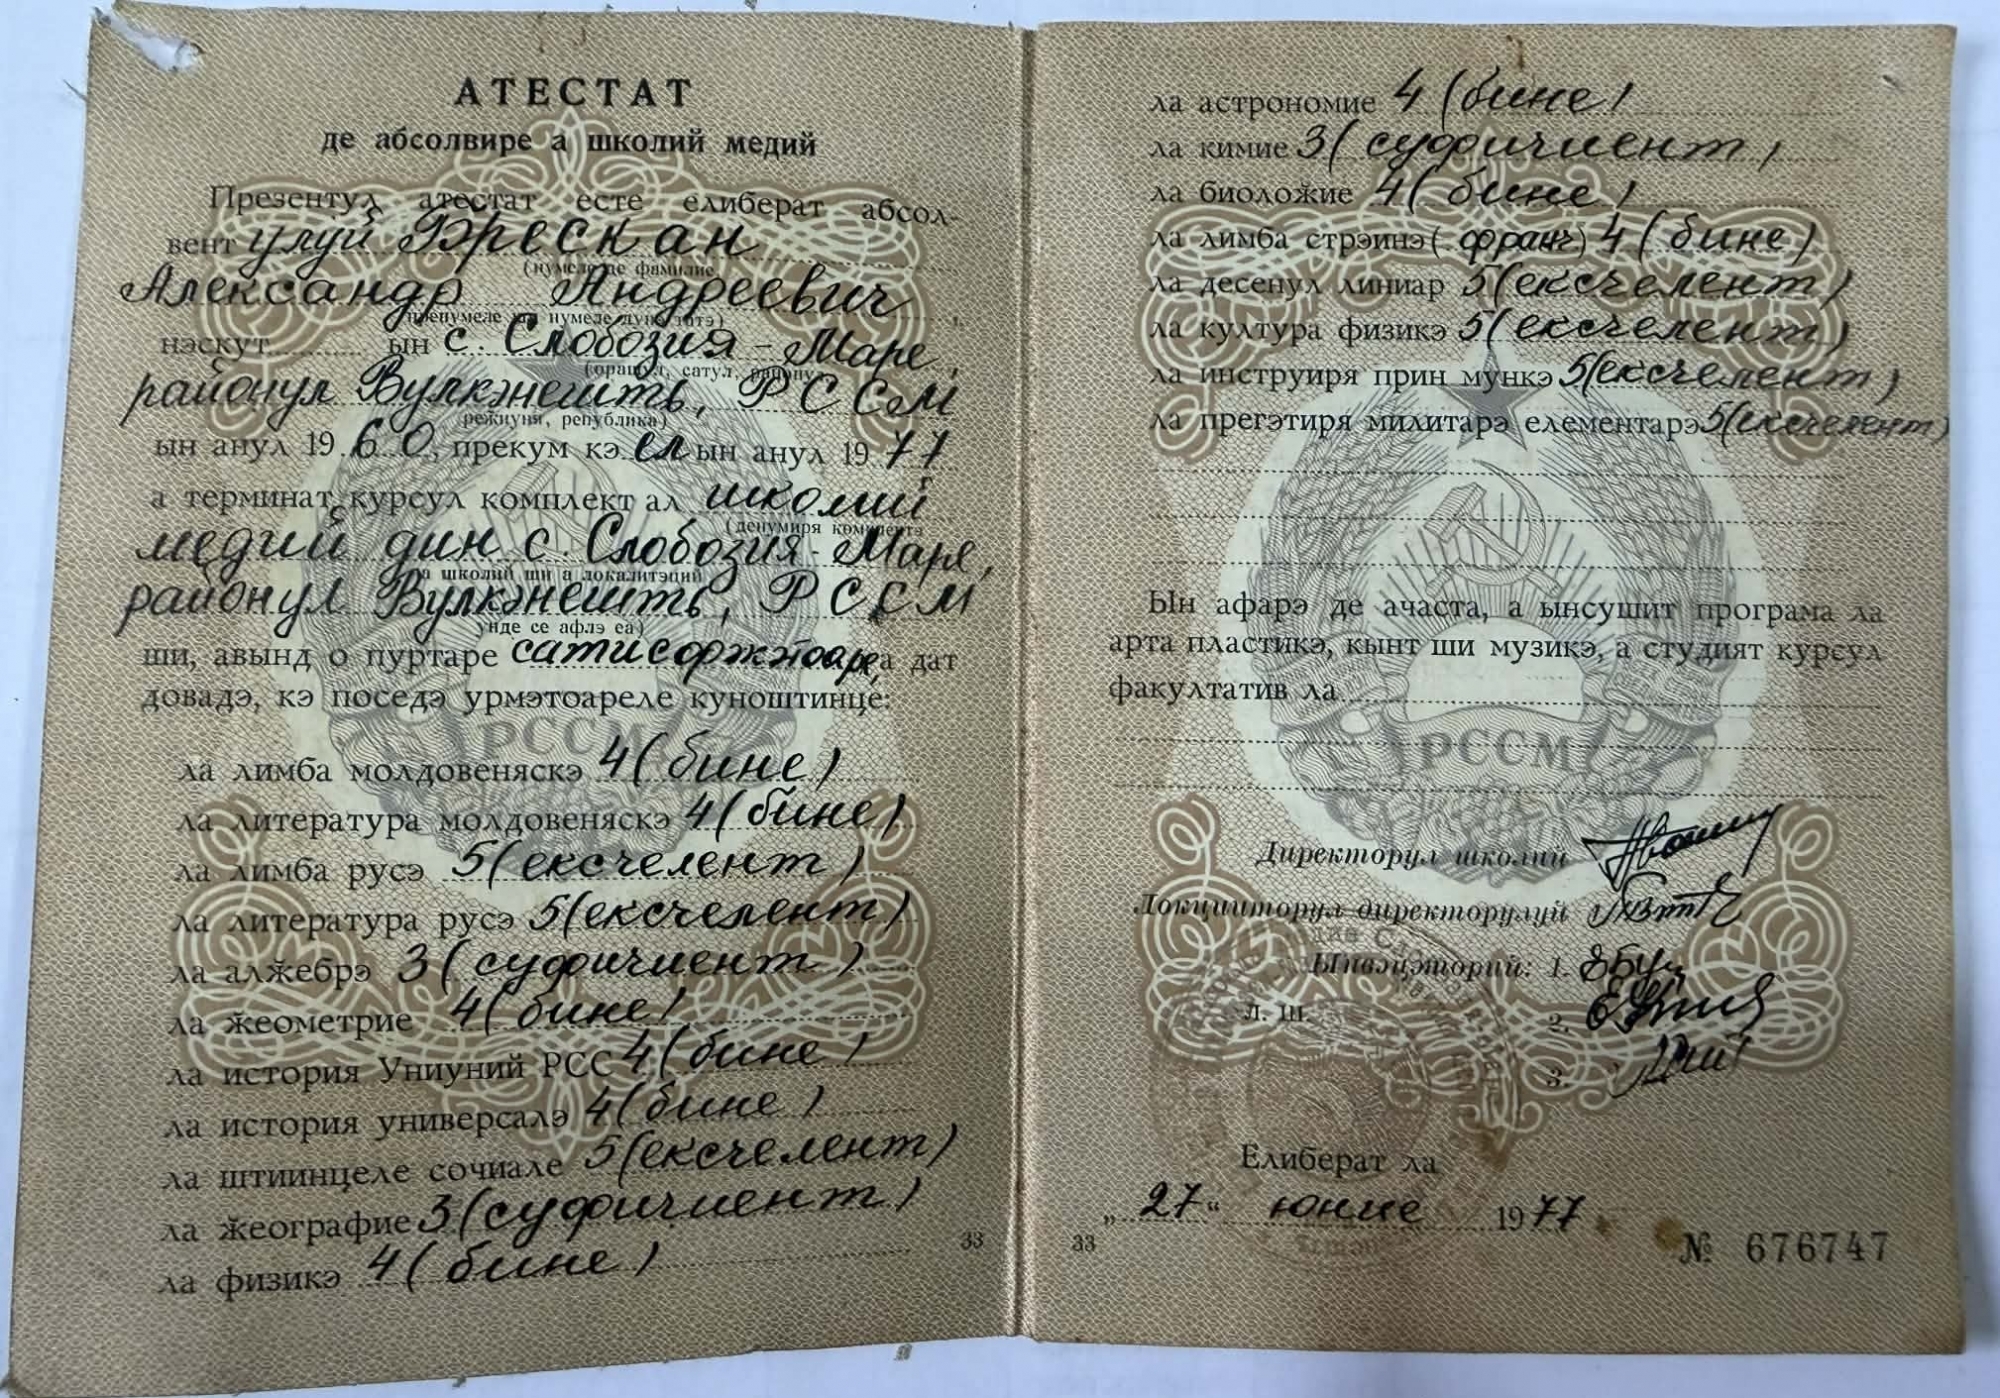 АТЕСТАТ
де абсолвире а школий медий
Презентул атестат есте елиберат абсол-
вент улуй Бэрескан
(нумеле де фамилие,
Александр Андреевич,
пренумеле ши нумеле дупэ татэ)
нэскут ын с. Слобозия-Маре,
(орашул, сатул, районул,
районул Вулкэнешть, РССМ
режиуня, република)
ын анул 1960, прекум кэ ел ын анул 1977
а терминат курсул комплект ал школий
(денумиря комплектэ
медий дин с. Слобозия-Маре,
а школий ши а локалитэций
районул Вулкэнешть, РССМ
унде се афлэ еа)
ши, авынд о пуртаре сатисфэкэтоаре, а дат
довадэ, кэ поседэ урмэтоареле куноштинце:
ла лимба молдовеняскэ 4 (бине)
ла литература молдовеняскэ 4 (бине)
ла лимба русэ 5 (ексчелент)
ла литература русэ 5 (ексчелент)
ла алӂебрэ 3 (суфичиент)
ла ӂеометрие 4 (бине)
ла история Униуний РСС 4 (бине)
ла история универсалэ 4 (бине)
ла штиинцеле сочиале 5 (ексчелент)
ла ӂеографие 3 (суфичиент)
ла физикэ 4 (бине)
33
РССМ
ла астрономие 4 (бине)
ла кимие 3 (суфичиент)
ла биоложие 4 (бине)
ла лимба стрэинэ (франч) 4 (бине)
ла десенул линиар 5 (ексчелент)
ла култура физикэ 5 (ексчелент)
ла инструиря прин мункэ 5 (ексчелент)
ла прегэтиря милитарэ елементарэ 5 (ексчелент)
Ын афарэ де ачаста, а ынсушит програма ла
арта пластикэ, кынт ши музикэ, а студият курсул
факултатив ла
РССМ
Директорул школий
Локцииторул директорулуй
Ынвэцэторий: 1.
Л. Ш. 2.
3.
Елиберат ла
„27" юние 1977
33
№ 676747